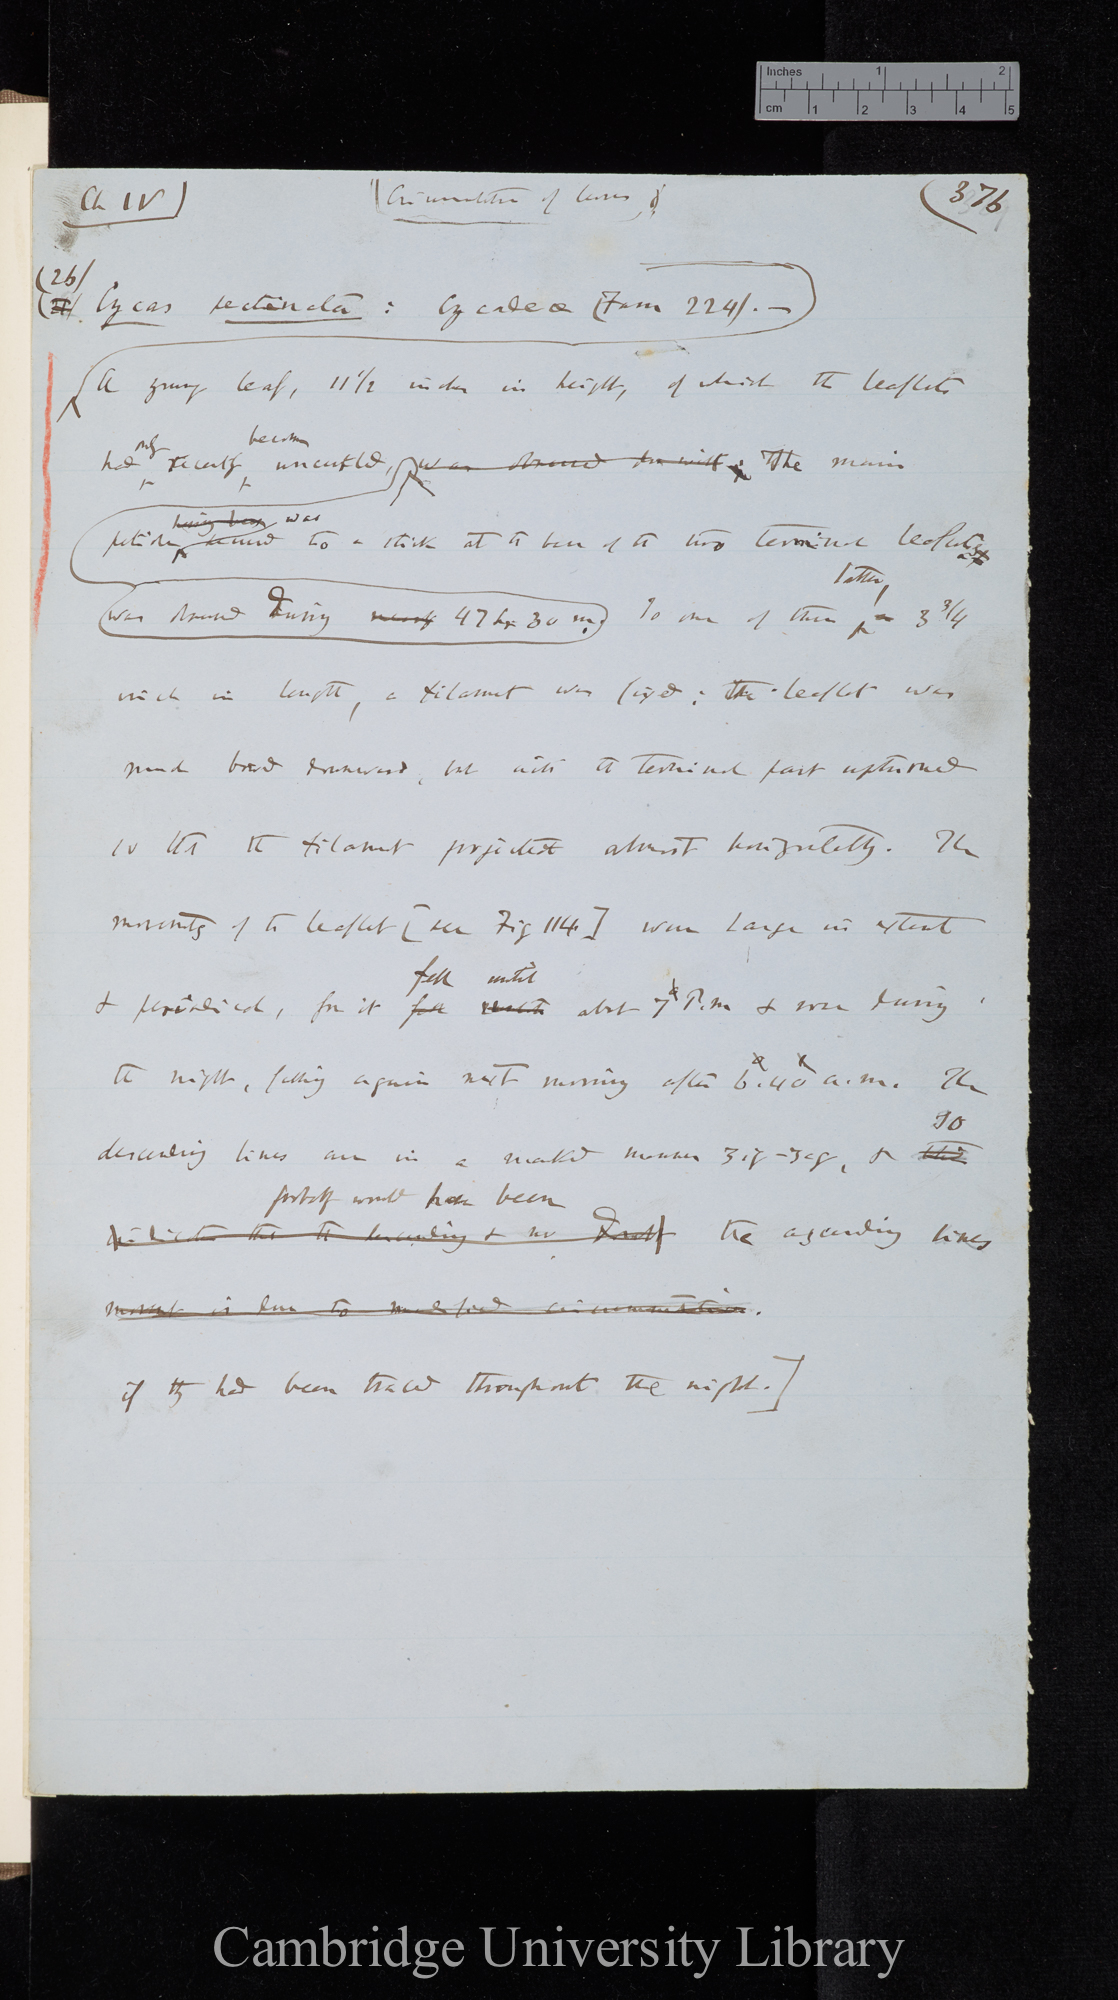 Inches 1 2
cm 1 2 3 4 5
Ch IV
Circumnutation of leaves
376
(26)
Cycas pectinata : Cycadeæ (Fam 224). —
A young leaf, 11 1/2 inches in height, of which the leaflets
only become
had recently uncurled, was observed during with ; The main
having been was
petiole secured to a stick at the base of the two terminal leaflets
latter,
was observed During nearly 47 hr 30 m. To one of them 3 3/4
inch in length, a filament was fixed ; the leaflet was
much bowed downwards, but with the terminal part upturned
so that the filament projected almost horizontally. The
movements of the leaflet [see Fig 114] were large in extent
fell until
& periodical, for it fell until about 7 P.m & rose during
the night, falling again next morning after 6.40 a.m. The
descending lines are in a marked manner zig-zag, & this
so
probably would have been
indicates that the descending & no doubt the ascending lines
movement is due to modified circumnutation.
if they had been traced throughout the night.]
Cambridge University Library